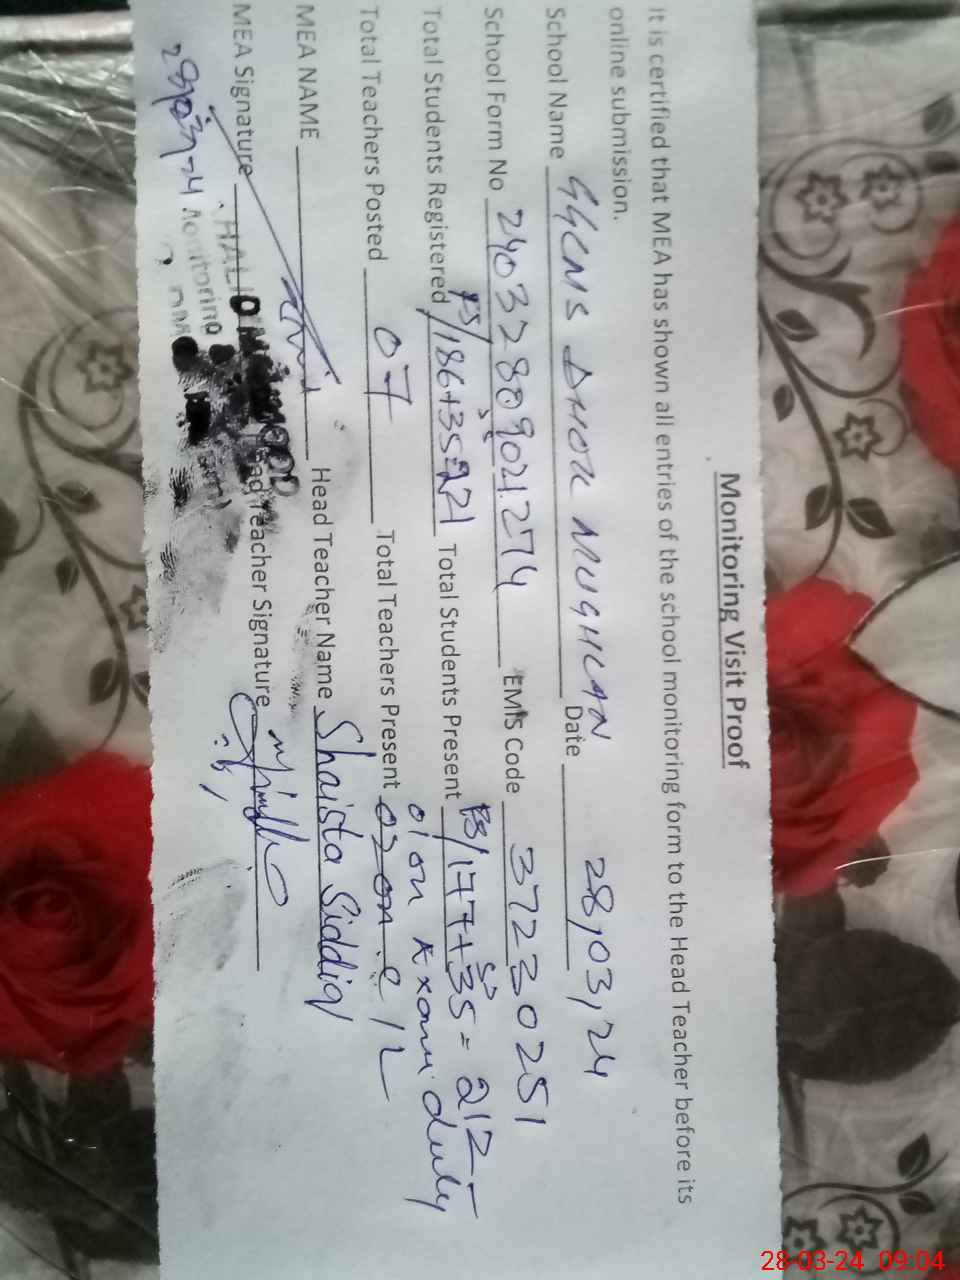 Monitoring Visit Proof
It is certified that MEA has shown all entries of the school monitoring form to the Head Teacher before its
online submission.
School Name GGCMS DHOK MUGHLAN Date 28,03,24
School Form No 24032809021274 EMIS Code 37230251
Total Students Registered 186+35=221 Total Students Present 177+35=212
Total Teachers Posted 07 Total Teachers Present 05 on
01 on Exam duty
MEA NAME Head Teacher Name Shaista Siddiq
MEA Signature Head Teacher Signature
Monitoring
28-03-24 09:04